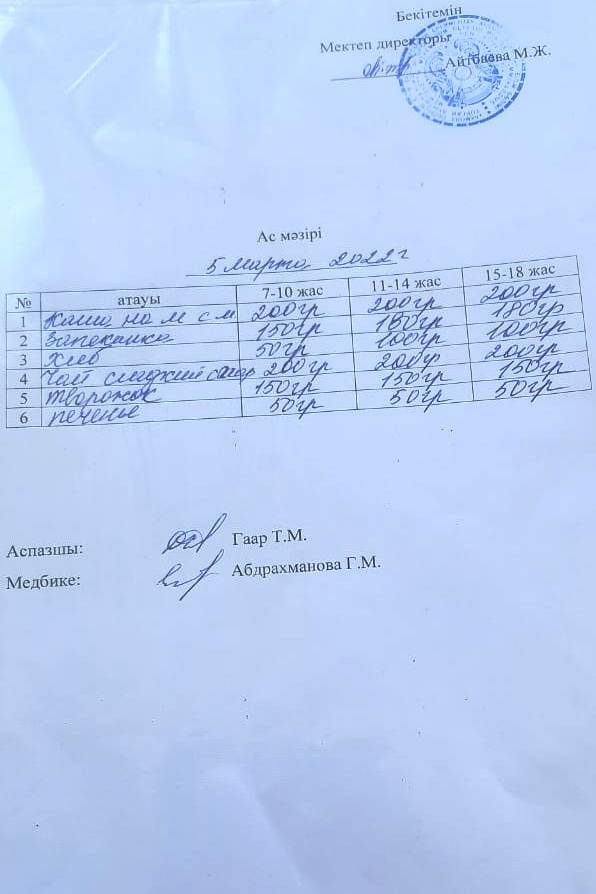 Бекітемін
Мектеп директоры
Айтбаева М.Ж.
Ас мәзірі
5 марта 2022 г
№ атауы 7-10 жас 11-14 жас 15-18 жас
1 Каша на м с м 200гр 200гр 200гр
2 Запеканка 150гр 180гр 180гр
3 Хлеб 50гр 100гр 100гр
4 Чай сладкий сахар 200гр 200гр 200гр
5 творожок 150гр 150гр 150гр
6 печенье 50гр 50гр 50гр
Аспазшы: Гаар Т.М.
Медбике: Абдрахманова Г.М.